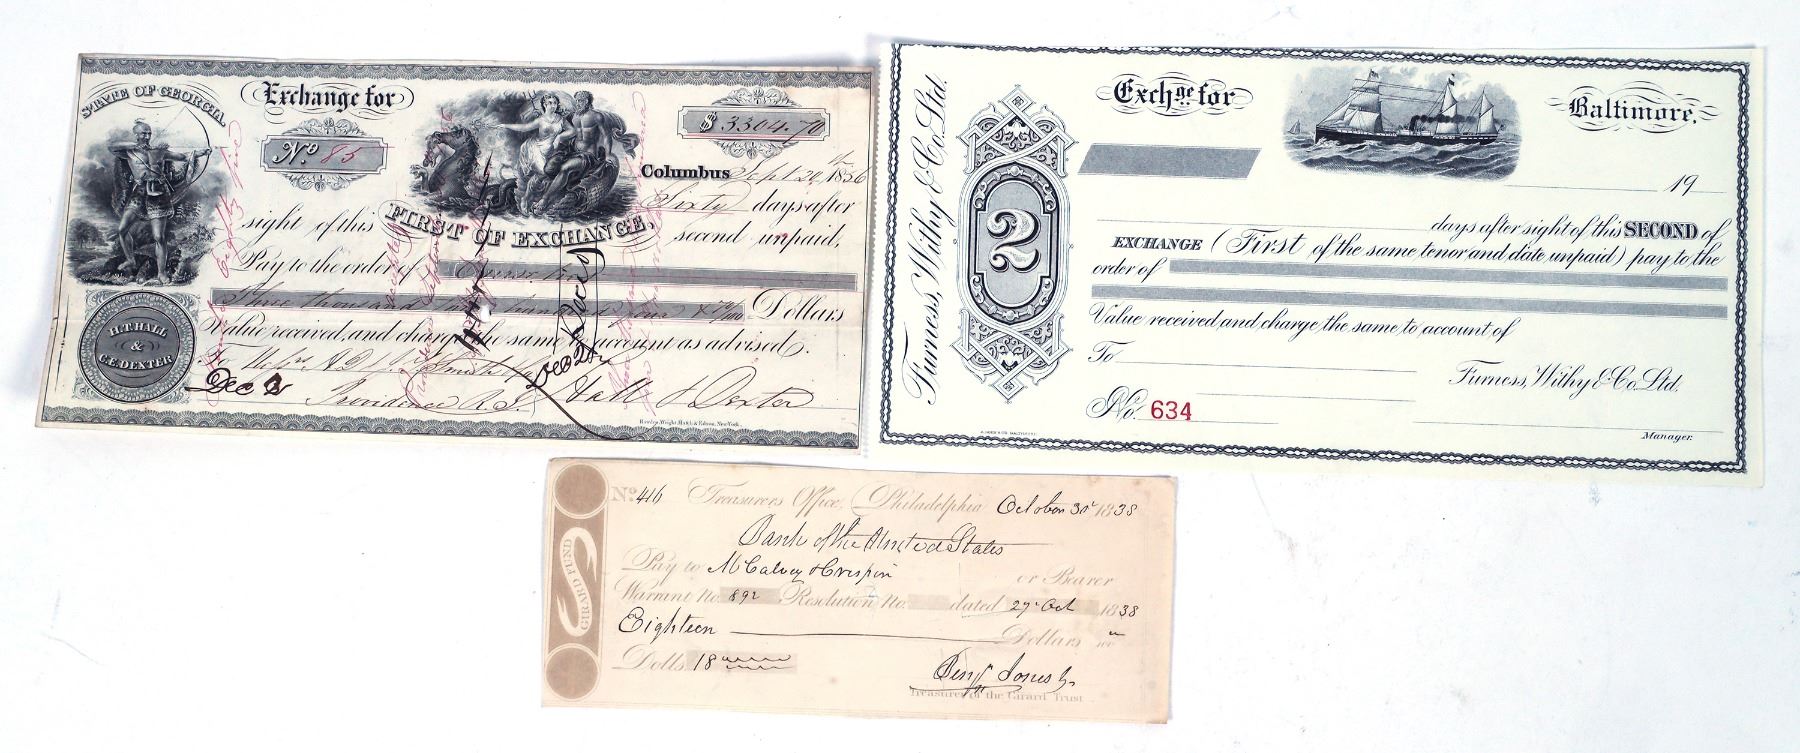 STATE OF GEORGIA.
Exchange for
$ 3304.70
No. 85
Columbus Sept 20, 1856
Sixty days after
sight of this FIRST OF EXCHANGE, second unpaid,
Pay to the order of
Three thousand three hundred four & 70/100 Dollars
Value received, and charge the same to account as advised.
H.T. HALL
&
C.E. DEXTER
To Messrs A.D. & J.Y. Smith
Providence R.I. Hall & Dexter
Dec 2
Dec 2
Rawdon, Wright, Hatch & Edson, New York.
Furness, Withy & Co. Ltd.
2
Exchge for
Baltimore,
19
days after sight of this SECOND of
EXCHANGE (First of the same tenor and date unpaid) pay to the
order of
Value received and charge the same to account of
To
Furness, Withy & Co. Ltd.
No. 634
Manager.
GIRARD FUND
No. 416 Treasurers Office, Philadelphia October 30 1838
Bank of the United States
Pay to McCalvey & Crispin or Bearer
Warrant No. 892 Resolution No. dated 29 Oct 1838
Eighteen Dollars
Dolls. 18
Benj Jones Jr
Treasurer of the Girard Trust